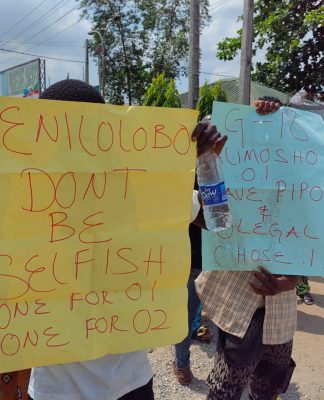 ENILOLOBO
DON'T
BE
SELFISH
ONE FOR 01
ONE FOR 02
G-18
ALIMOSHO
01
HAVE PIPO
&
DELEGAL
CHOSE :1